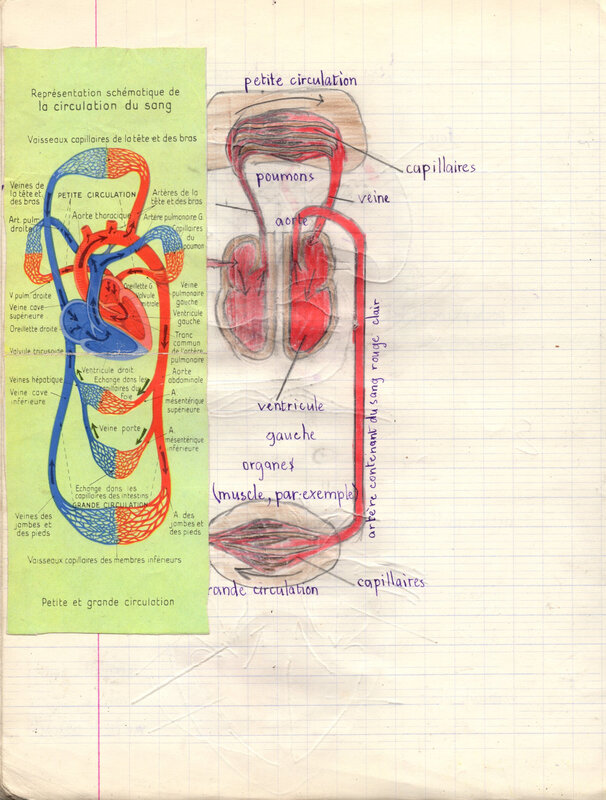 Représentation schématique de
la circulation du sang
Vaisseaux capillaires de la tête et des bras
Veines de
la tête et
des bras
PETITE CIRCULATION
Artères de la
tête et des bras
Aorte thoracique
Art. pulm.
droite
Artère pulmonaire G.
Capillaires
du
poumon
Oreillette G
Valvule
mitrale
V. pulm. droite
Veine cave
supérieure
Oreillette droite
Valvule tricuspide
Veine
pulmonaire
gauche
Ventricule
gauche
Tronc
commun
de l'artère
pulmonaire
Ventricule droit
Veines hépatique
Echange dans les
capillaires du
Foie
Aorte
abdominale
Veine cave
inférieure
A.
mésentérique
supérieure
Veine porte
A.
mésentérique
inférieure
Echange dans les
capillaires des intestins
GRANDE CIRCULATION
Veines des
jambes et
des pieds
A. des
jambes et
des pieds
Vaisseaux capillaires des membres inférieurs
Petite et grande circulation
petite circulation
capillaires
poumons
veine
aorte
artère contenant du sang rouge clair
ventricule
gauche
organes
(muscle, par exemple)
capillaires
rande circulation